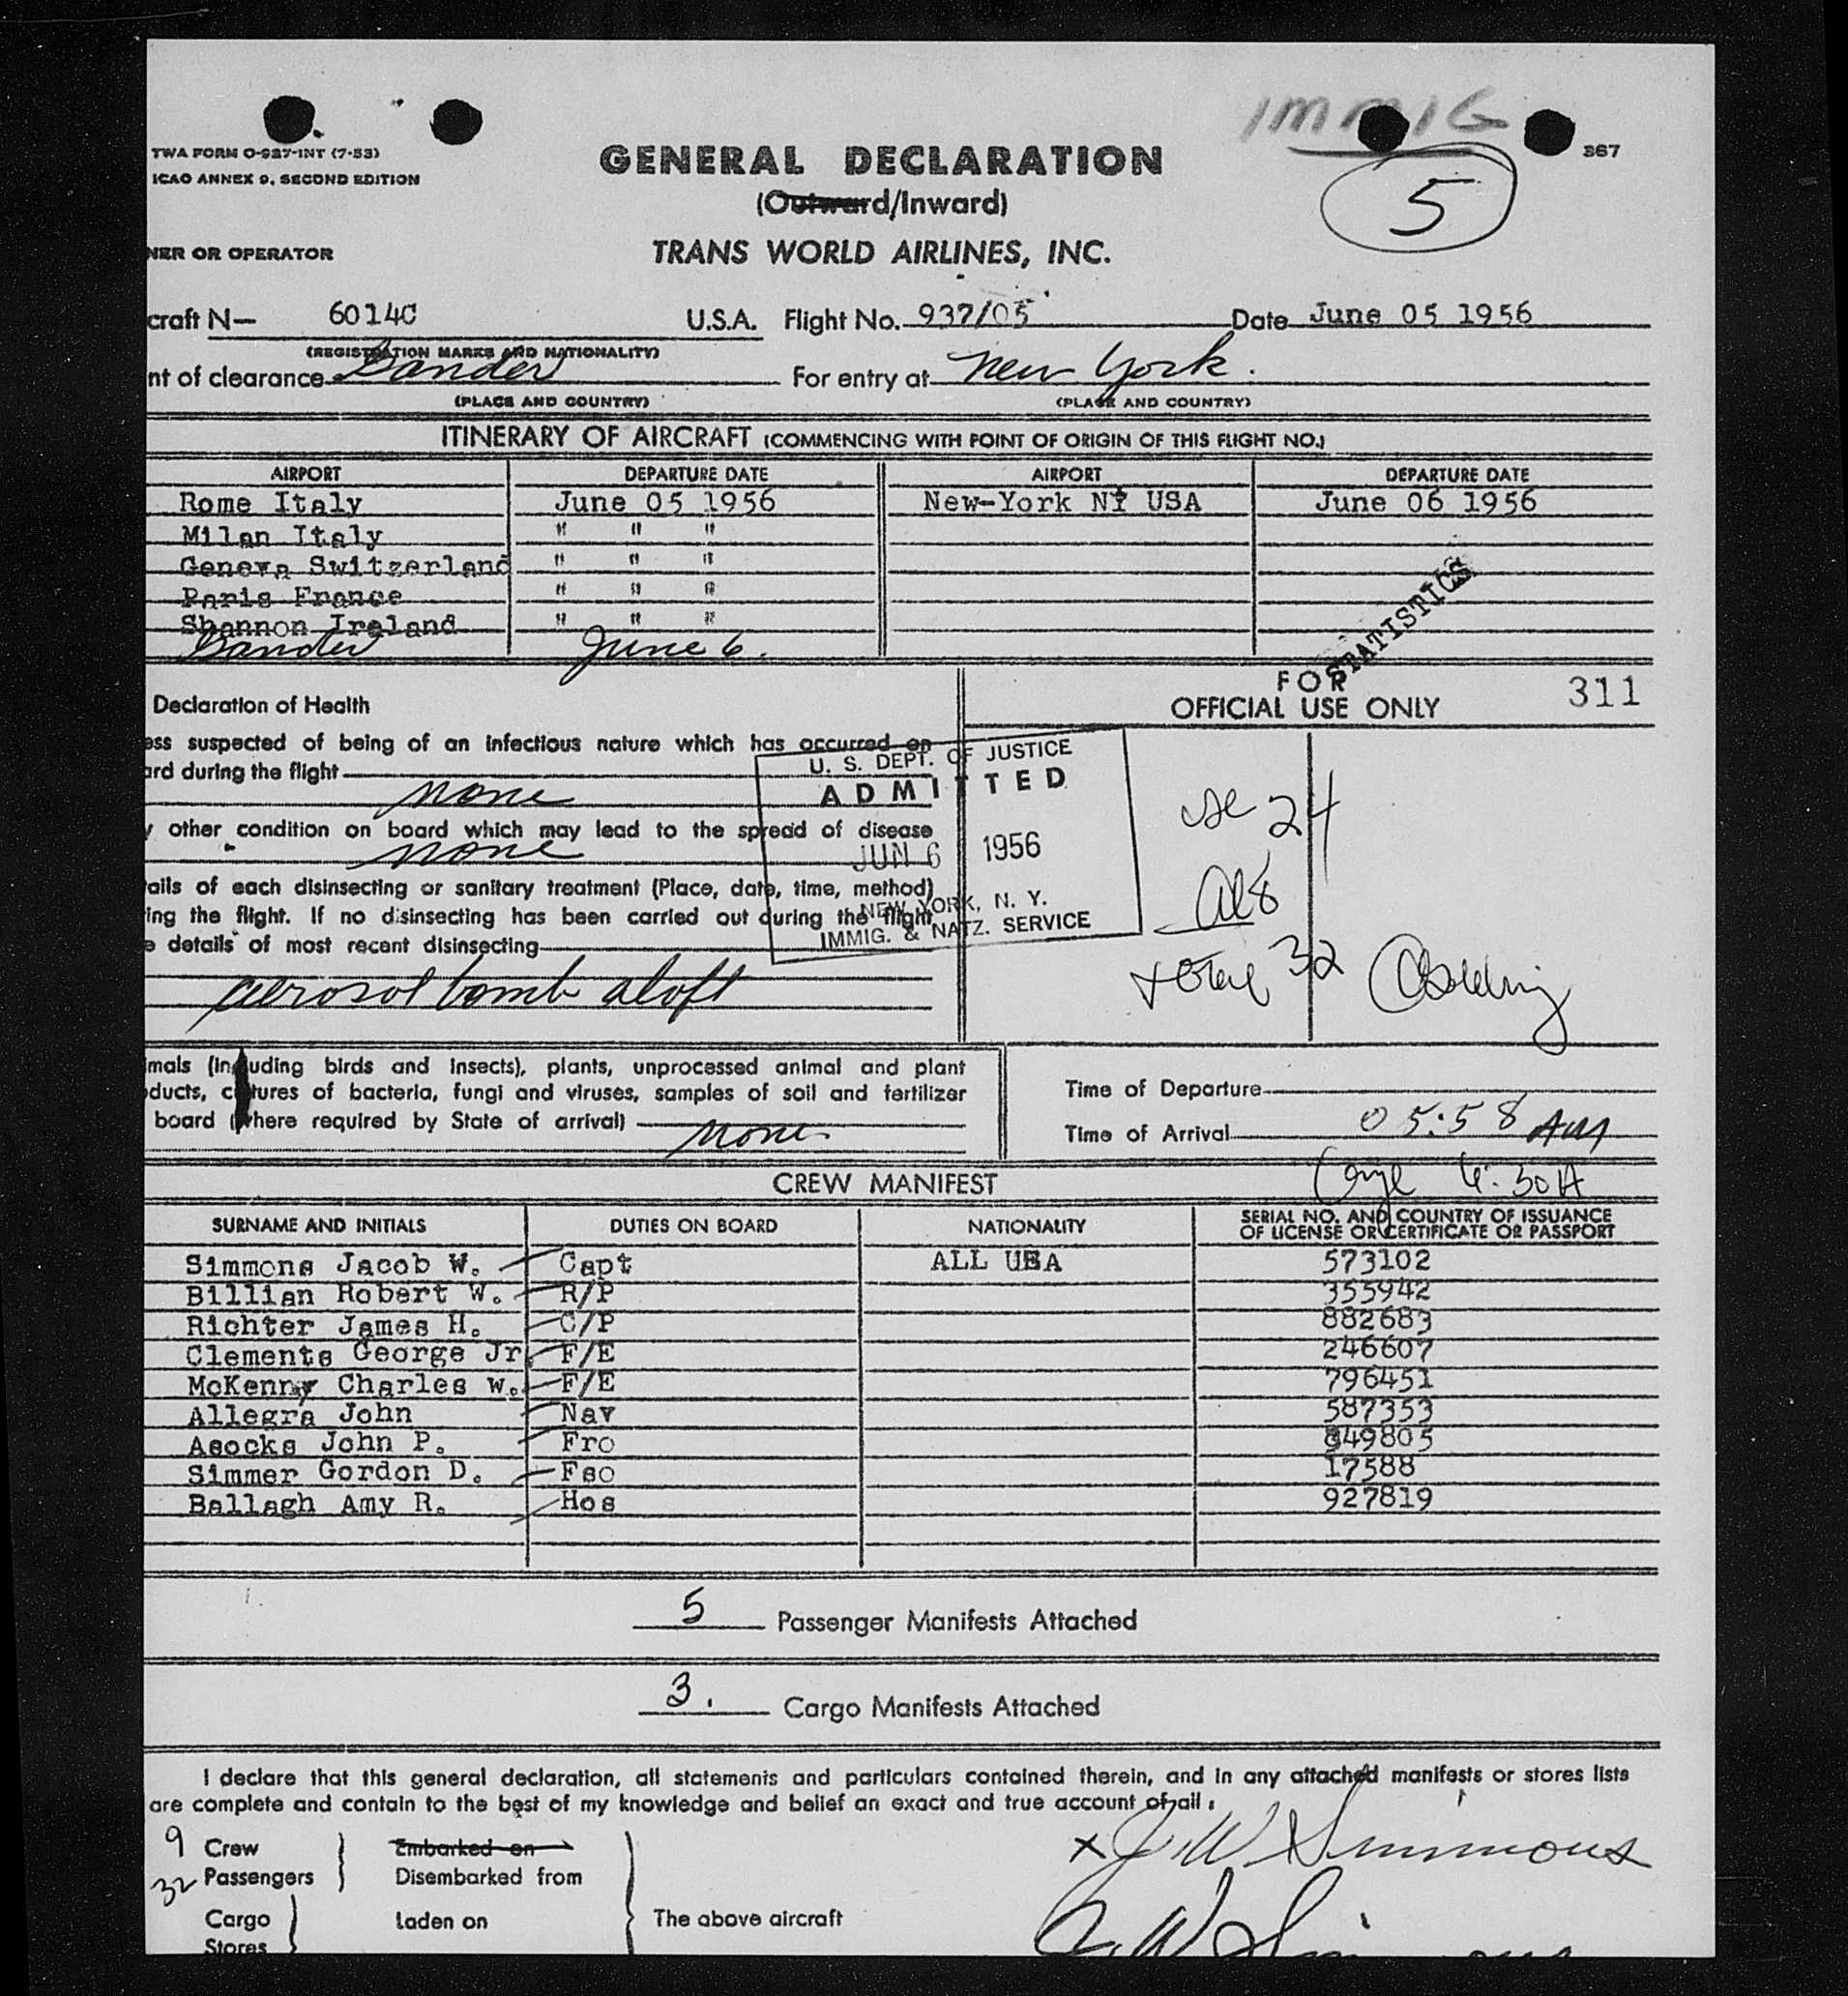 IMMIG
TWA FORM O-937-INT (7-53)
ICAO ANNEX 9, SECOND EDITION
367
GENERAL DECLARATION
(Outward/Inward)
5
NER OR OPERATOR
TRANS WORLD AIRLINES, INC.
craft N— 6014C U.S.A. Flight No. 937/05 Date June 05 1956
(REGISTRATION MARKS AND NATIONALITY)
nt of clearance Gander For entry at New York.
(PLACE AND COUNTRY) (PLACE AND COUNTRY)
ITINERARY OF AIRCRAFT (COMMENCING WITH POINT OF ORIGIN OF THIS FLIGHT NO.)
AIRPORT DEPARTURE DATE AIRPORT DEPARTURE DATE
Rome Italy June 05 1956 New-York NY USA June 06 1956
Milan Italy " " "
Geneva Switzerland " " "
Paris France " " "
Shannon Ireland " " "
Gander June 6.
STATISTICS
Declaration of Health
FOR
OFFICIAL USE ONLY 311
ess suspected of being of an infectious nature which has occurred on
ard during the flight
none
y other condition on board which may lead to the spread of disease
none
U. S. DEPT. OF JUSTICE
ADMITTED
JUN 6 1956
NEW YORK, N. Y.
IMMIG. & NATZ. SERVICE
24
al 8
total 32
tails of each disinsecting or sanitary treatment (Place, date, time, method)
ing the flight. If no disinsecting has been carried out during the flight
e details of most recent disinsecting
aerosol bomb aloft
imals (including birds and insects), plants, unprocessed animal and plant
ducts, cultures of bacteria, fungi and viruses, samples of soil and fertilizer
board (where required by State of arrival)
none
Time of Departure
Time of Arrival 05:58 AM
6:30A
CREW MANIFEST
SURNAME AND INITIALS DUTIES ON BOARD NATIONALITY SERIAL NO. AND COUNTRY OF ISSUANCE
OF LICENSE OR CERTIFICATE OR PASSPORT
Simmons Jacob W. Capt ALL USA 573102
Billian Robert W. R/P 355942
Richter James H. C/P 882683
Clements George Jr. F/E 246607
McKenny Charles W. F/E 796451
Allegra John Nav 587353
Asocks John P. Fro 849805
Simmer Gordon D. Fso 17588
Ballagh Amy R. Hos 927819
5 Passenger Manifests Attached
3. Cargo Manifests Attached
I declare that this general declaration, all statements and particulars contained therein, and in any attached manifests or stores lists
are complete and contain to the best of my knowledge and belief an exact and true account of all.
9 Crew Embarked on
32 Passengers Disembarked from
x J W Simmons
Cargo Laden on The above aircraft
Stores